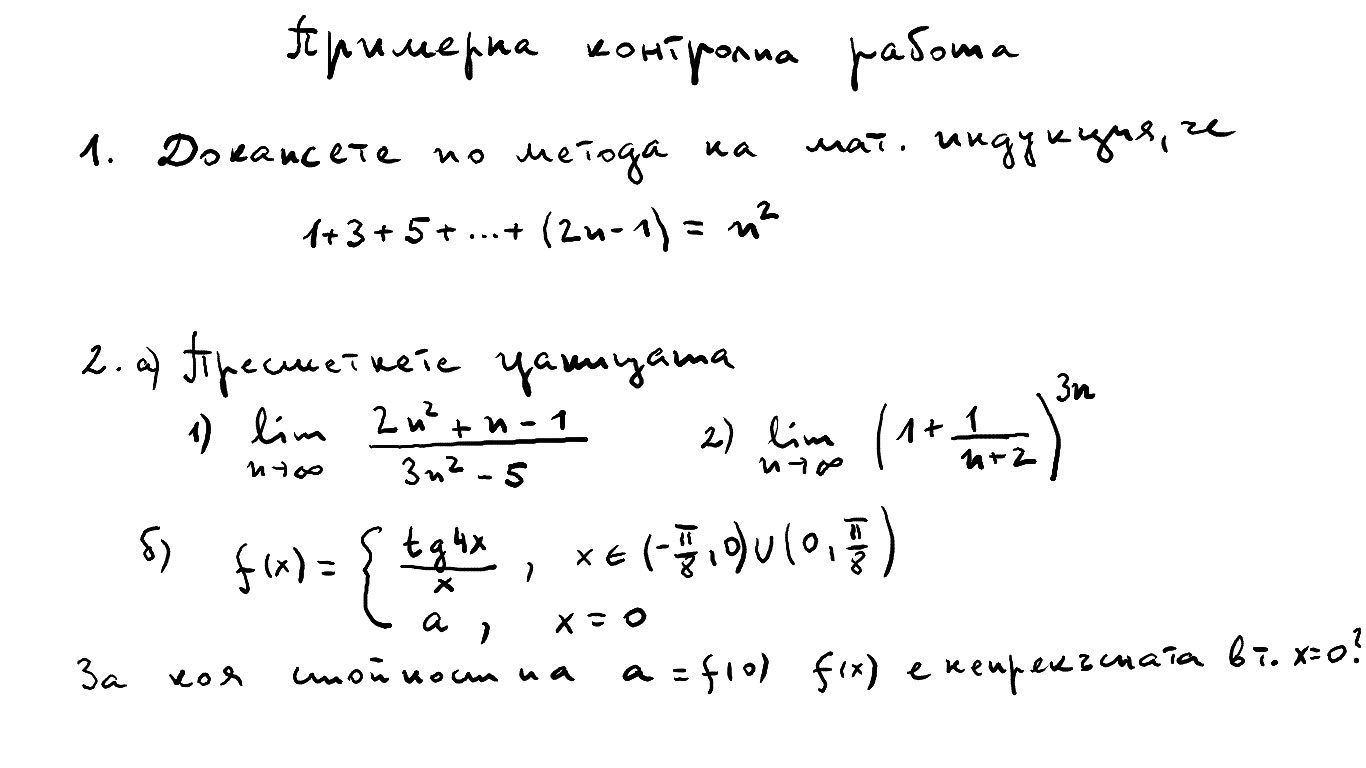 Примерна контролна работа
1. Докажете по метода на мат. индукция, че
1+3+5+...+(2n-1) = n²
2. а) Пресметнете границата
1) lim n→∞ (2n²+n-1)/(3n²-5) 2) lim n→∞ (1+1/(n+2))^3n
б) f(x) = { tg4x/x , x ∈ (-π/8, 0) ∪ (0, π/8)
a , x = 0
За коя стойност на a = f(0) f(x) е непрекъсната в т. x=0?